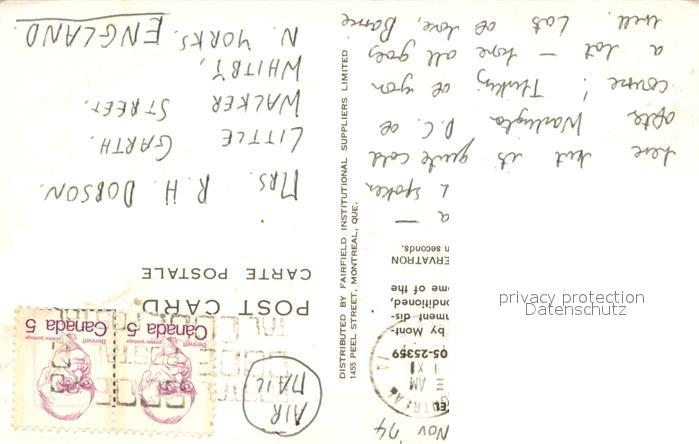 Nov '74
AIR
MAIL
POST CARD
CARTE POSTALE
MRS. R. H. DOBSON.
LITTLE GARTH.
WALKER STREET.
WHITBY,
N. YORKS.
ENGLAND.
Bennett
postes postage
Canada 5
Bennett
postes postage
Canada 5
AM
XI
DISTRIBUTED BY FAIRFIELD INSTITUTIONAL SUPPLIERS LIMITED
1455 PEEL STREET, MONTREAL, QUE.
05-25359
by Mont-
ment dis-
onditioned,
ome of the
ERVATRON
n seconds.
a —
spoken
here but it's quite cold
after Washington D.C. of
course! Thinking of you
a lot — hope all goes
well. Lots of love,
privacy protection
Datenschutz